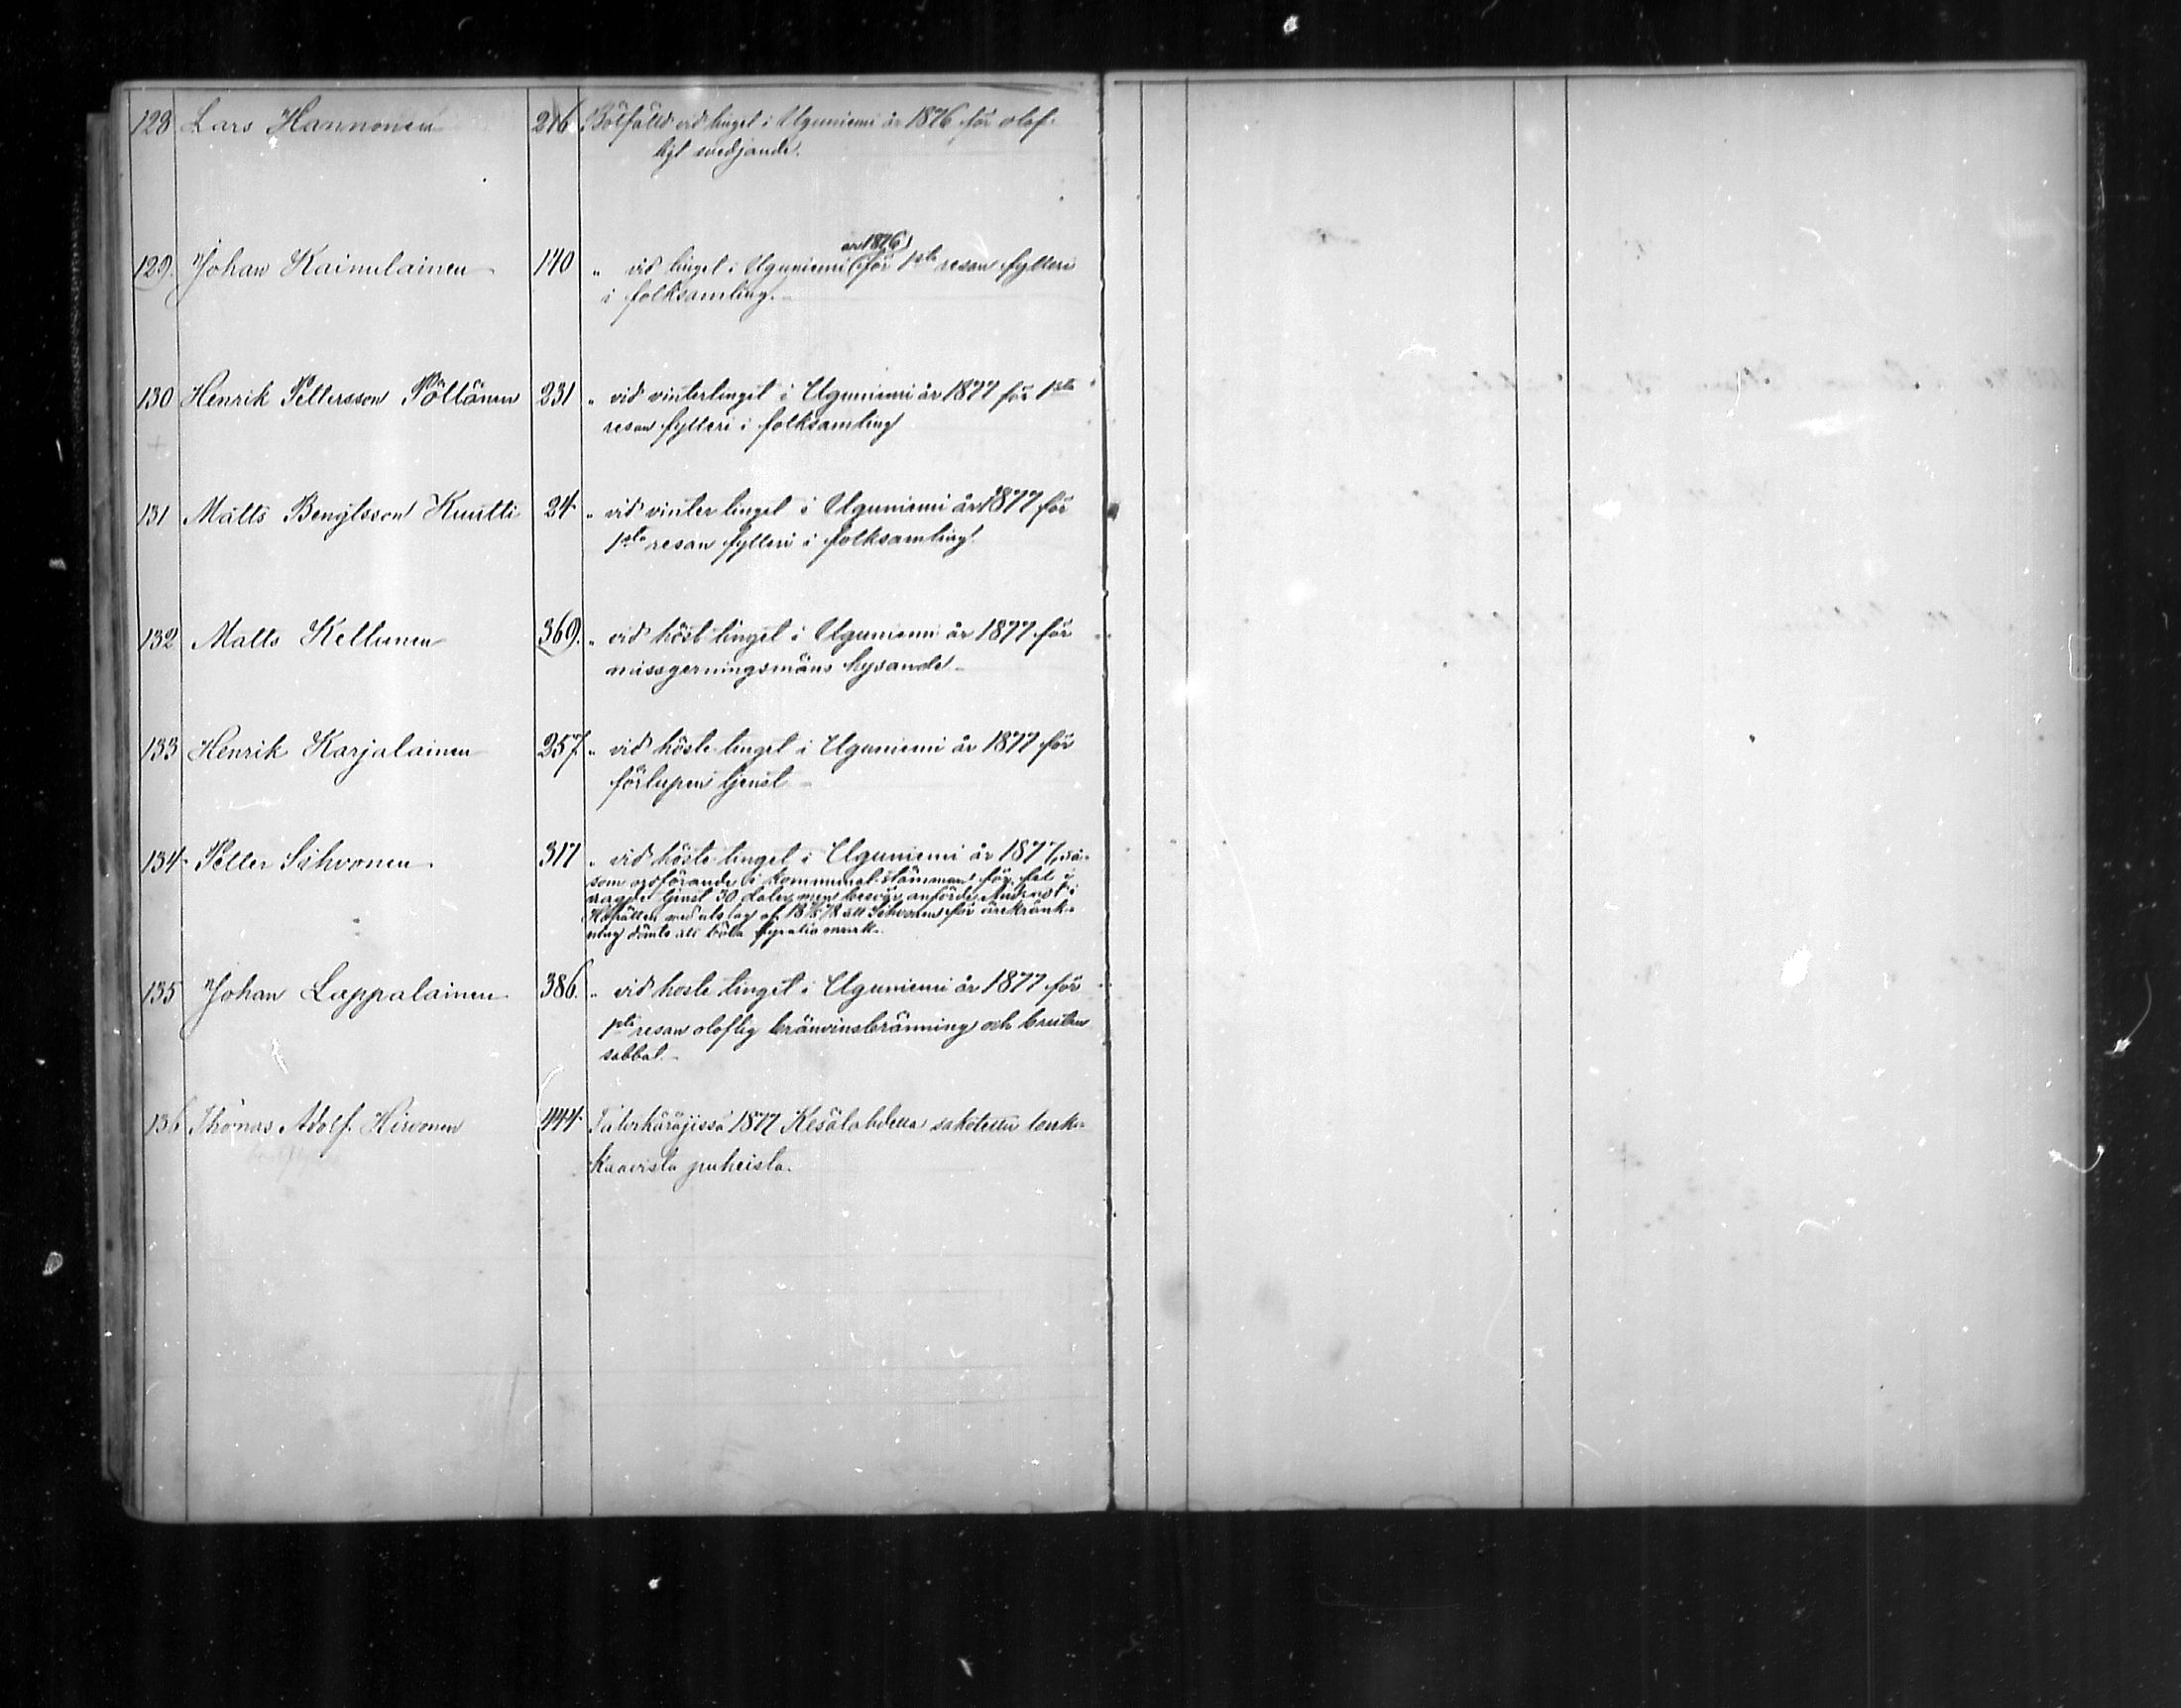 128 Lars Hannonen 216 Bötfälld vid tinget i Uguniemi år 1876 för olof-
ligt svedjande.
129. Johan Kainulainen 140 " vid tinget i Uguniemi (år 1876) för 1sta resan fylleri
i folksamling.
130 Henrik Pettersson Pöllänen 231 " vid vintertinget i Uguniemi år 1877 för 1sta
resan fylleri i folksamling
131 Matts Bengtsson Kuutti 24 " vid vinter tinget i Uguniemi år 1877 för
1sta resan fylleri i folksamling.
132 Matts Kettunen 369. " vid höst tinget i Uguniemi år 1877 för
missgerningsmäns hysande
133 Henrik Karjalainen 257. " vid höste tinget i Uguniemi år 1877 för
förlupen tjenst
134 Petter Sihvonen. 317 " vid höste tinget i Uguniemi år 1877,
som ordförande i kommunal-stämman för fel i
tjenst 30 daler, men besvär anförde
Hofrätten med utslag af att Sihvonen för ärekränk-
ning dömts att böta fyratio mark.
135 Johan Lappalainen 386. " vid hoste tinget i Uguniemi år 1877 för
1sta resan oloflig bränvinsbränning och bruten
sabbat.
136 Thomas Adolf Hirvonen 444. Talvikäräjissä 1877 Kesälahdella sakotettu louk-
kaavista puheista.